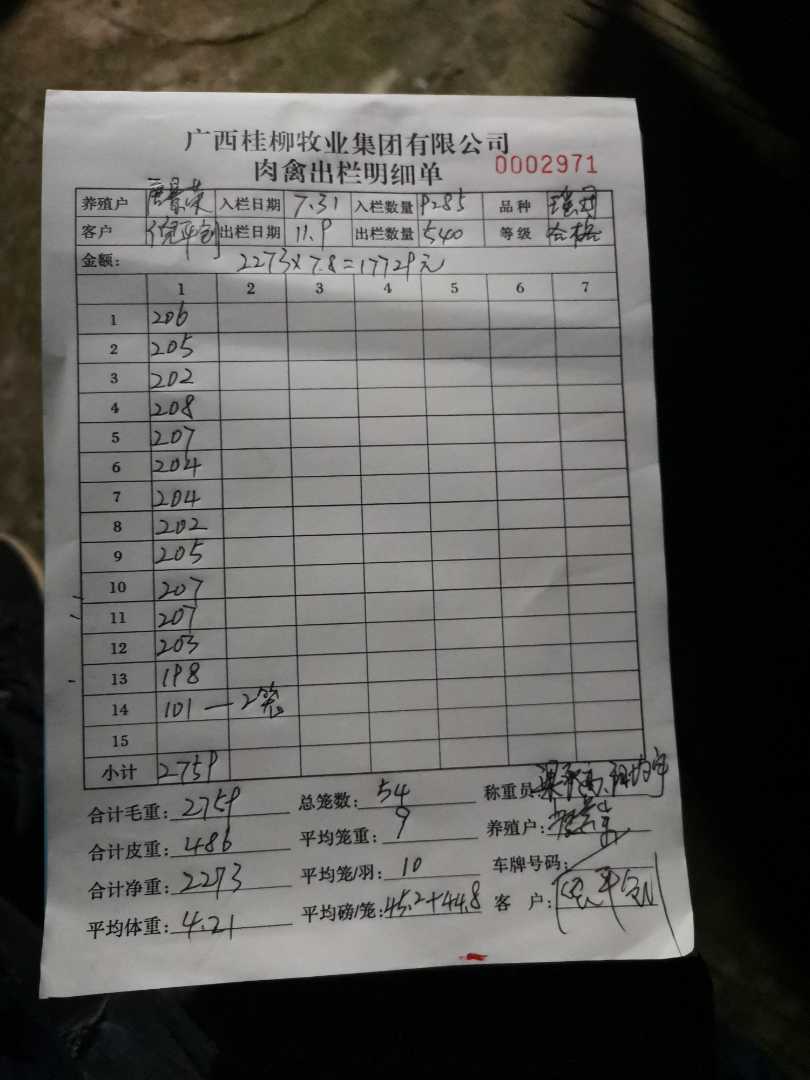 广西桂柳牧业集团有限公司
肉禽出栏明细单 0002971
养殖户 唐景荣 入栏日期 7.31 入栏数量 9285 品种
客户 倪平创 出栏日期 11.9 出栏数量 540 等级 合格
金额: 2273×7.8=17729元
1 2 3 4 5 6 7
1 206
2 205
3 202
4 208
5 207
6 204
7 204
8 202
9 205
10 207
11 207
12 203
13 198
14 101 — 2笼
15
小计 2759
合计毛重: 2759 总笼数: 54 称重员
合计皮重: 486 平均笼重: 9 养殖户:
合计净重: 2273 平均笼/羽: 10 车牌号码:
平均体重: 4.21 平均磅/笼: 45.2+44.8 客 户: 倪平创